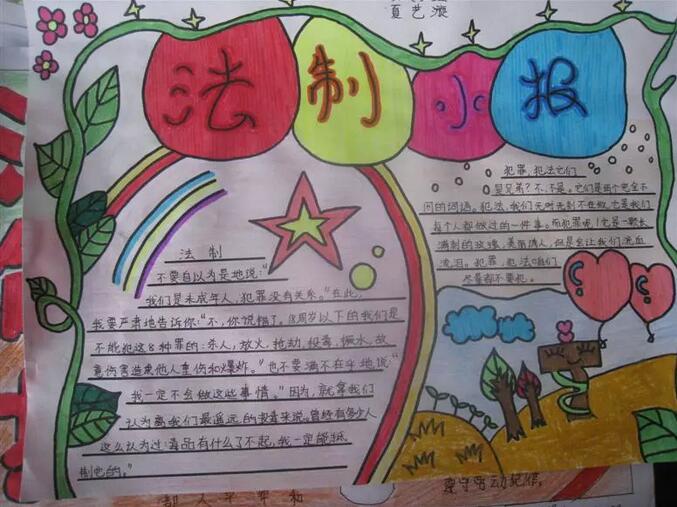 夏艺漩
法制小报
法制
不要自以为是地说："
我们是未成年人，犯罪没有关系。"在此，
我要严肃地告诉你："不，你说错了。18周岁以下的我们是
不能犯这8种罪的：杀人，放火，抢劫，投毒，
意伤害造成他人重伤和爆炸。"也不要满不在乎地说："
我一定不会做这些事情。"因为，就拿我们
认为离我们最遥远的吸毒来说。曾经有多少人
这么认为过：毒品有什么了不起，我一定能抵
制它的。"
犯罪、犯法它们
是兄弟？不、不是。它们是两个完全不
同的词语。犯法，我们无时无刻不在做，它是我们
每个人都做过的一件事。而犯罪呢！它是一颗长
满刺的玫瑰，美丽诱人，但是会让我们流血
流泪。犯罪、犯法咱们
尽量都不要犯。